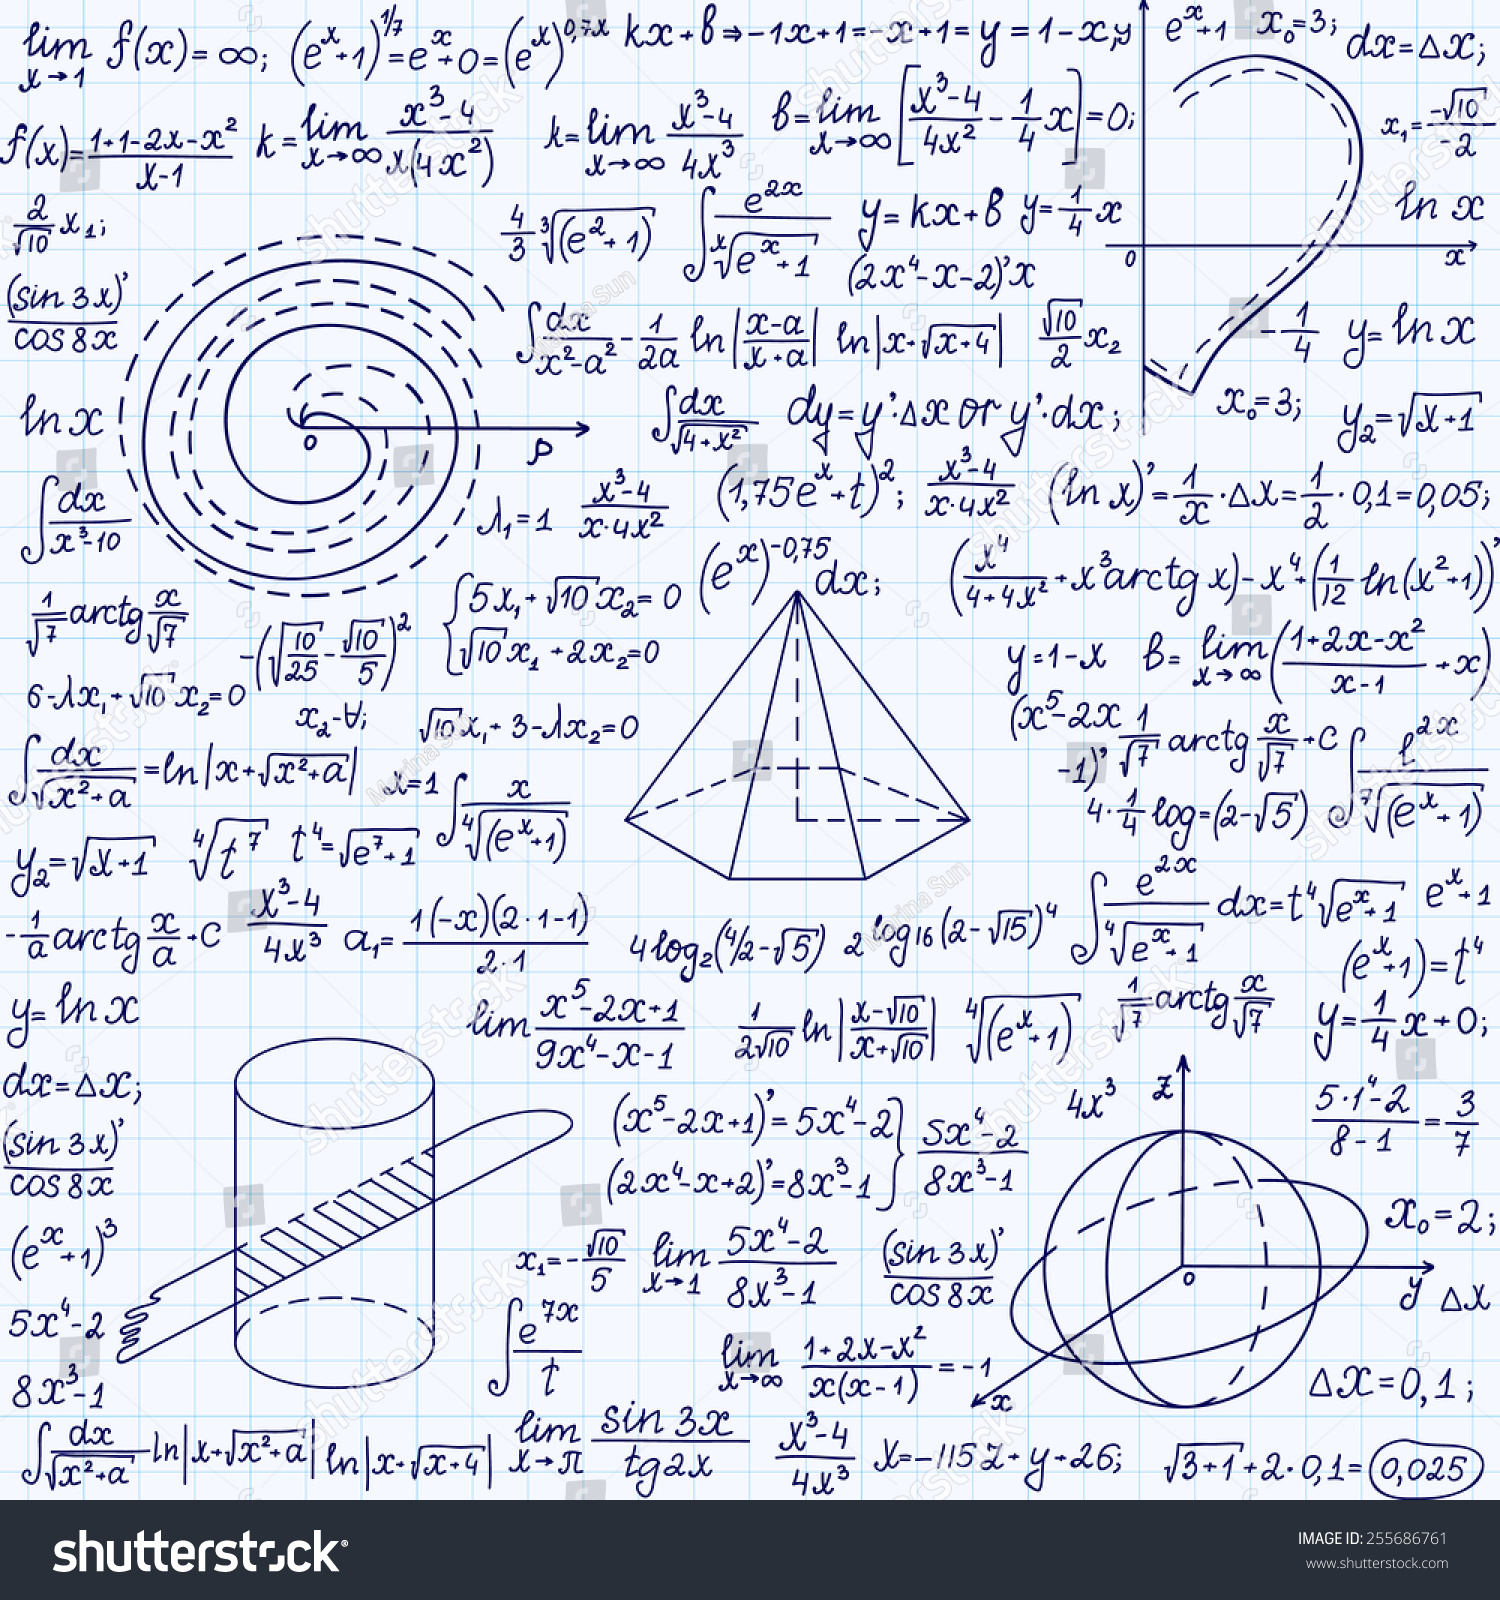 lim x→1 f(x)=∞; (eˣ+1)^1/7=eˣ+0=(eˣ)^0,7x kx+b⇒-1x+1=-x+1= y=1-x;y eˣ+1 x₀=3; dx=Δx;
f(x)=(1+1-2x-x²)/(x-1) k=lim x→∞ (x³-4)/(x(4x²)) k=lim x→∞ (x³-4)/(4x³) b=lim x→∞ [(x³-4)/(4x²) - 1/4 x]=0; x₁=(-√10)/(-2)
2/√10 x₁; 4/3 ³√(e²+1) ∫e^2x/ˣ√(eˣ+1) y=kx+b y=1/4 x ln x
0 x
(sin 3x)'/cos 8x (2x⁴-x-2)'x
∫dx/(x²-a²) - 1/2a ln|(x-a)/(x+a)| ln|x+√(x+4)| √10/2 x₂ -1/4 y=ln x
ln x 0 ρ ∫dx/√(4+x²) dy=y'·Δx or y'·dx; x₀=3; y₂=√(x+1)
∫dx/(x³-10) λ₁=1 (x³-4)/(x·4x²) (1,75eˣ+t)²; (x³-4)/(x·4x²) (ln x)'=1/x·Δx=1/2·0,1=0,05;
1/√7 arctg x/√7 -(√(10/25)-√10/5)² {5x₁+√10x₂=0 √10x₁+2x₂=0 (eˣ)^-0,75 dx; (x⁴/(4+4x²)+x³arctg x)-x⁴+(1/12 ln(x²+1))'
6-λx₁+√10x₂=0 x₂-∀; √10x₁+3-λx₂=0 y=1-x b=lim x→∞ ((1+2x-x²)/(x-1)+x)
∫dx/√(x²+a)=ln|x+√(x²+a)| x=1 ∫x/⁴√(eˣ+1) (x⁵-2x-1)' 1/√7 arctg x/√7+C ∫l^2x/⁷√(eˣ+1)
4·1/4 log=(2-√5)
y₂=√(x+1) ⁴√t⁷ t⁴=√(e⁷+1)
-1/a arctg x/a+C (x³-4)/(4x³) a₁=(1(-x)(2·1-1))/(2·1) 4log₂(4/2-√5) 2log₁₆(2-√15)⁴ ∫e^2x/⁴√(eˣ+1) dx=t⁴√(eˣ+1) eˣ+1
(eˣ+1)=t⁴
y=ln x lim (x⁵-2x+1)/(9x⁴-x-1) 1/2√10 ln|(x-√10)/(x+√10)| ⁴√(eˣ+1) 1/√7 arctg x/√7 y=1/4 x+0;
dx=Δx; (x⁵-2x+1)'=5x⁴-2} (5x⁴-2)/(8x³-1) 4x³ z (5·1⁴-2)/(8-1)=3/7
(sin 3x)'/cos 8x (2x⁴-x+2)'=8x³-1
(eˣ+1)³ x₁=-√10/5 lim x→1 (5x⁴-2)/(8x³-1) (sin 3x)'/cos 8x 0 y x₀=2;
Δx
5x⁴-2 ∫e^7x/t lim x→∞ (1+2x-x²)/(x(x-1))=-1 x Δx=0,1;
8x³-1
∫dx/√(x²+a) ln|x+√(x²+a)| ln|x+√(x+4)| lim x→π sin 3x/tg2x (x³-4)/(4x³) x=-115z+y+26; √3+1+2·0,1=0,025
shutterstock
IMAGE ID: 255686761
www.shutterstock.com